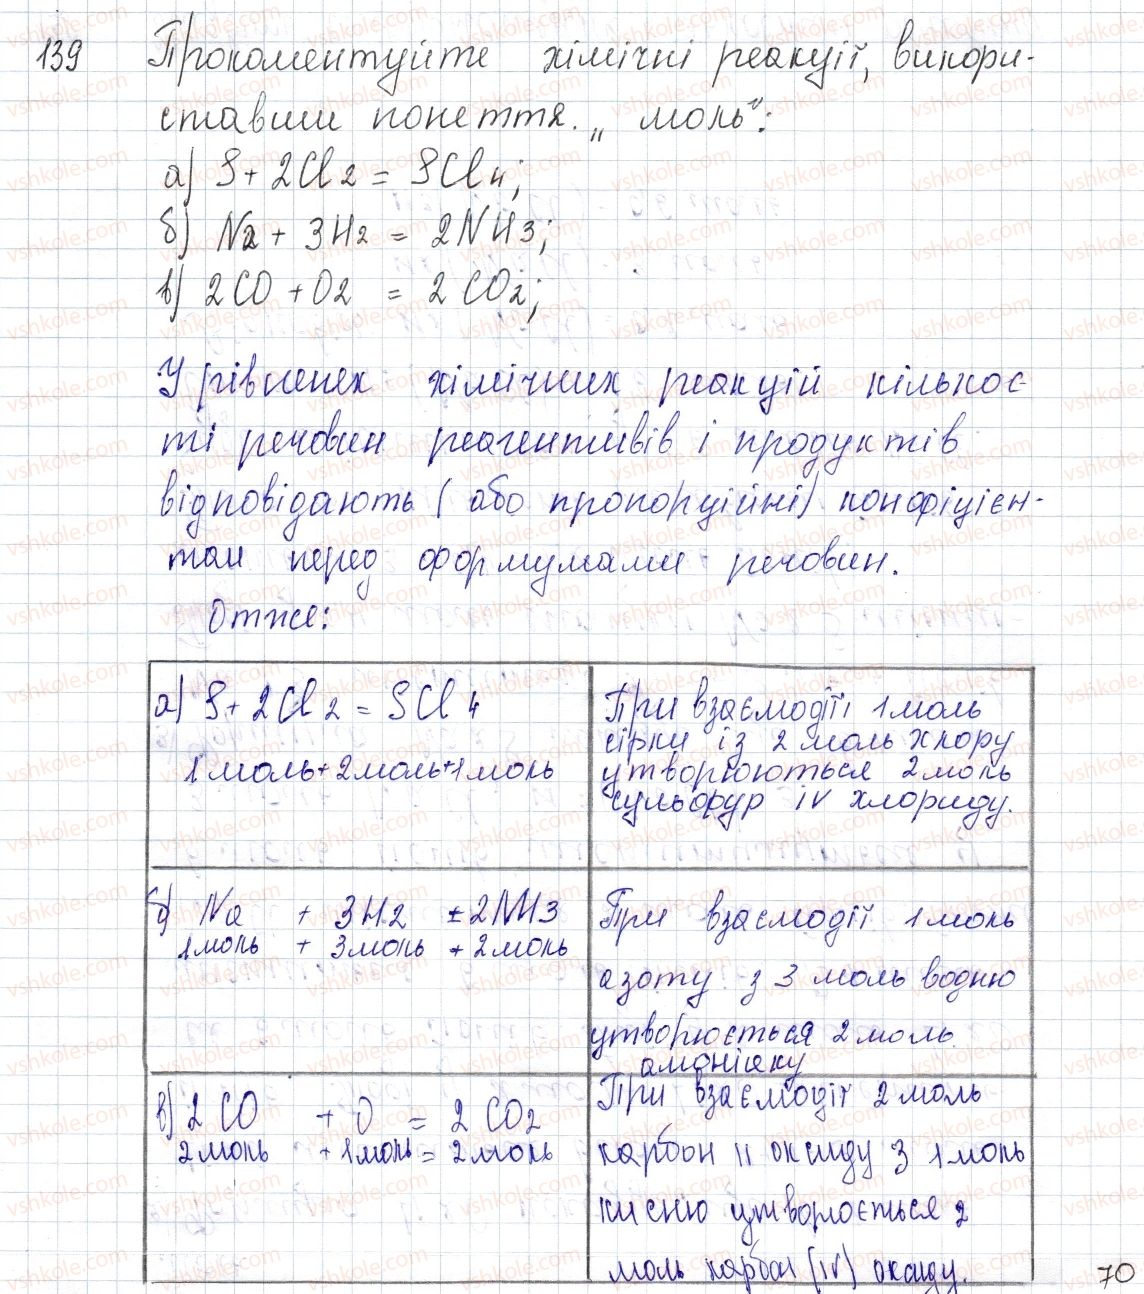 139 Прокоментуйте хімічні реакції, викори-
ставши поняття „моль":
а) S + 2Cl2 = SCl4;
б) N2 + 3H2 = 2NH3;
в) 2CO + O2 = 2CO2;
У рівненях хімічних реакцій кількос
ті речовин реагентивів і продуктів
відповідають (або пропорційні) коефіцієн-
там перед формулами речовин.
Отже:
а) S + 2Cl2 = SCl4
1 моль + 2 моль + 1 моль
При взаємодії 1 моль
сірки із 2 моль хлору
утворюються 2 моль
сульфур IV хлориду.
б) N2 + 3H2 = 2NH3
1 моль + 3 моль + 2 моль
При взаємодії 1 моль
азоту з 3 моль водню
утворюється 2 моль
амоніаку
в) 2CO + O = 2CO2
2 моль + 1 моль = 2 моль
При взаємодії 2 моль
карбон II оксиду з 1 моль
кисню утворюється 2
моль карбон (IV) оксиду.
70